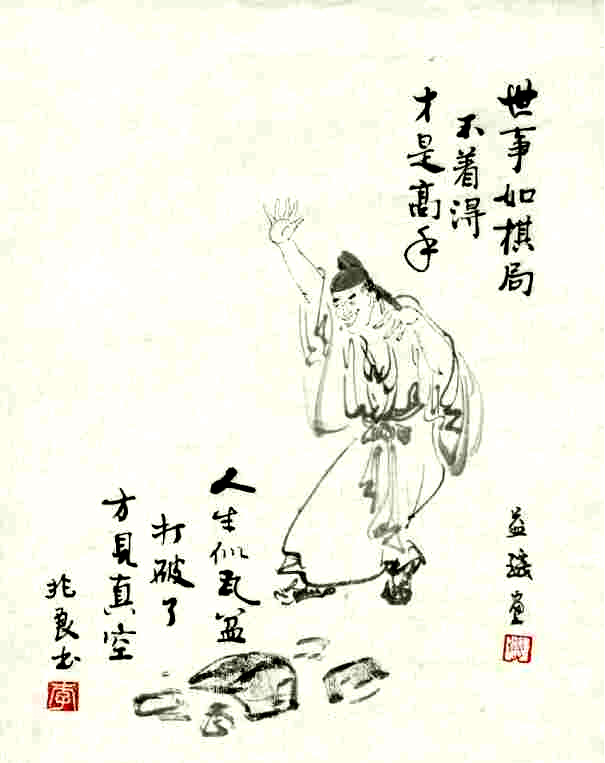 世事如棋局
不着得
才是高手
人生似瓦盆
打破了
方見真空
兆良书
李